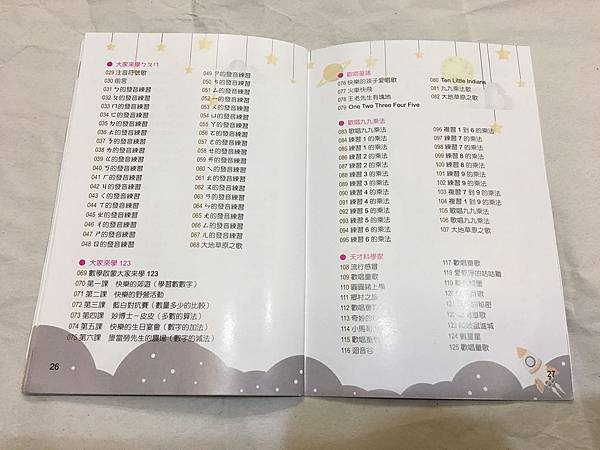 大家來學ㄅㄆㄇ
029 注音符號歌
030 前言
031 ㄅ的發音練習
032 ㄆ的發音練習
033 ㄇ的發音練習
034 ㄈ的發音練習
035 ㄉ的發音練習
036 ㄊ的發音練習
037 ㄋ的發音練習
038 ㄌ的發音練習
039 ㄍ的發音練習
040 ㄎ的發音練習
041 ㄏ的發音練習
042 ㄐ的發音練習
043 ㄑ的發音練習
044 ㄒ的發音練習
045 ㄓ的發音練習
046 ㄔ的發音練習
047 ㄕ的發音練習
048 ㄖ的發音練習
049 ㄗ的發音練習
050 ㄘ的發音練習
051 ㄙ的發音練習
052 ㄧ的發音練習
053 ㄨ的發音練習
054 ㄩ的發音練習
055 ㄚ的發音練習
056 ㄛ的發音練習
057 ㄜ的發音練習
058 ㄝ的發音練習
059 ㄞ的發音練習
060 ㄟ的發音練習
061 ㄠ的發音練習
062 ㄡ的發音練習
063 ㄢ的發音練習
064 ㄣ的發音練習
065 ㄤ的發音練習
066 ㄥ的發音練習
067 ㄦ的發音練習
068 大地草原之歌
大家來學 123
069 數學啟蒙大家來學 123
070 第一課 快樂的郊遊（學習數數字）
071 第二課 快樂的野營活動
072 第三課 藍白對抗賽（數量多少的比較）
073 第四課 妙博士－皮皮（多數的算法）
074 第五課 快樂的生日宴會（數字的加法）
075 第六課 麥當勞先生的農場（數字的減法）
26
歡唱童謠
076 快樂的孩子愛唱歌
077 火車快飛
078 王老先生有塊地
079 One Two Three Four Five
080 Ten Little Indians
081 九九乘法歌
082 大地草原之歌
歡唱九九乘法
083 歌唱九九乘法
084 練習 1 的乘法
085 練習 1 的乘法
086 練習 2 的乘法
087 練習 2 的乘法
088 練習 3 的乘法
089 練習 3 的乘法
090 練習 4 的乘法
091 練習 4 的乘法
092 練習 5 的乘法
093 練習 5 的乘法
094 練習 6 的乘法
095 練習 6 的乘法
096 複習 1 到 6 的乘法
097 練習 7 的乘法
098 練習 7 的乘法
099 練習 8 的乘法
100 練習 8 的乘法
101 練習 9 的乘法
102 練習 9 的乘法
103 複習 7 到 9 的乘法
104 複習 1 到 9 的乘法
105 歌唱九九乘法
106 歌唱九九乘法
107 大地草原之歌
天才科學家
108 流行感冒
109 歡唱童歌
110 圓圓豬上學
111 鄉村之旅
112 歡唱童
113 奇妙的
114 小馬哥
115 歡唱童
116 迴音谷
117 歡唱童歌
118 愛乾淨的咕咕雞
119
120
121
122
123
124 數星星
125 歡唱童歌
27